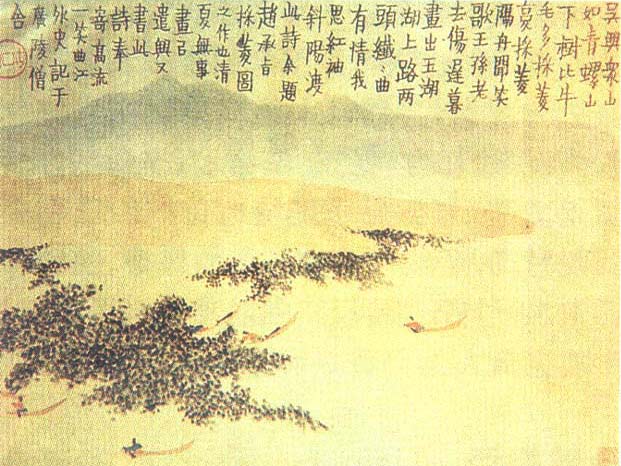 吳興衆山
如青螺山
下樹比牛
毛多採菱
复採菱
隔舟聞笑
歌王孫老
去傷遲暮
畫出玉湖
湖上路两
頭纖々曲
有情我
思紅袖
斜陽渡
此詩余題
趙承旨
採菱圖
之作也清
夏無事
畫已
遣興又
書此
詩奉
寄髙流
一笑曲江
外史記于
廣陵僧
舍